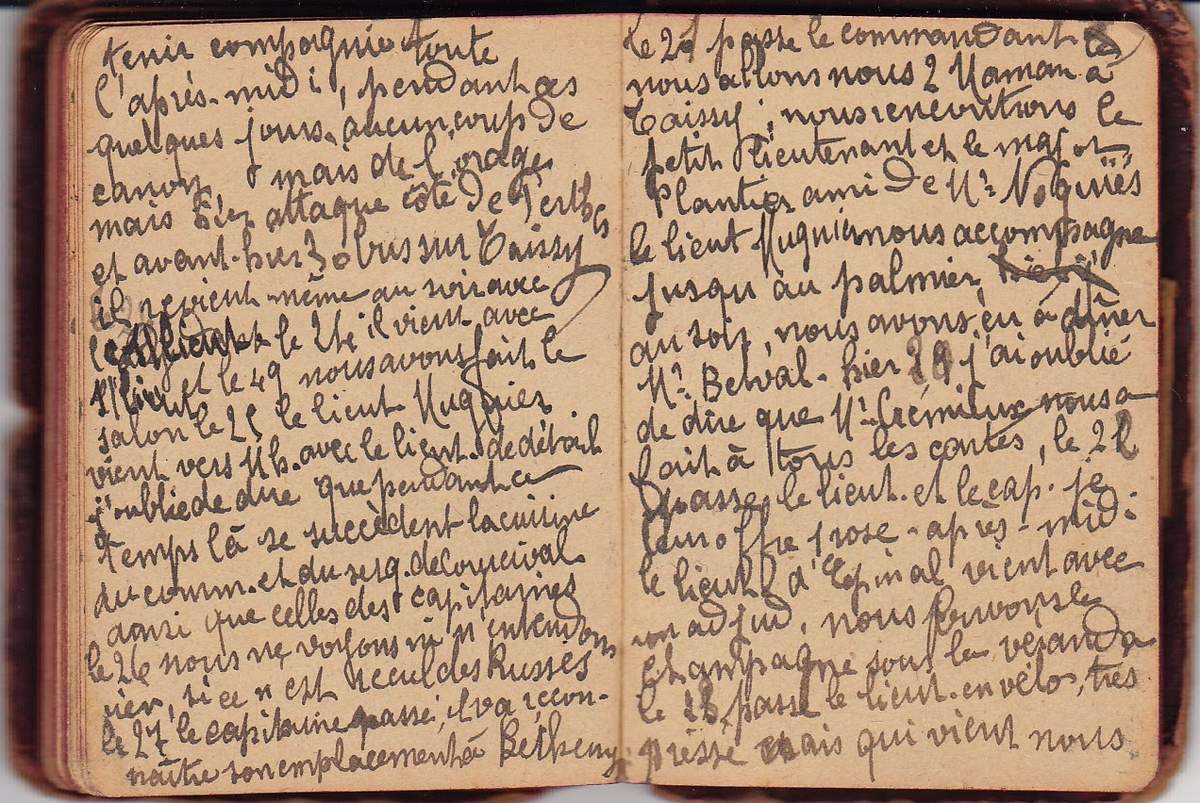 tenir compagnie toute
l'après-midi, pendant ces
quelques jours, aucun coup de
canon, mais de l'orage
mais hier attaque côté de Perthes
et avant-hier 3 obus sur Taissy
il revient même au soir avec
le 24 il vient avec
et le 49 nous avons fait le
salon le 25 le lieut Huguier
vient vers 11h. avec le lieut. de détail
j'oublie de dire que pendant ce
temps là se succèdent la cuisine
du comm. et du serg. de Courcival
ainsi que celles des capitaines
le 26 nous ne voyons ni n'entendons
rien, si ce n'est recul des Russes
le 27 le capitaine passe, il va recon-
naître son emplacement à Betheny
le 20 passe le commandant
nous allons nous 2 Maman à
Taissy, nous rencontrons le
petit lieutenant et le major
Plantier ami de Mr Noguiès
le lieut Huguier nous accompagne
jusqu'au palmier, hier
au soir, nous avons eu à dîner
Mr. Belval. hier 28 j'ai oublié
de dire que Mr. Crémieux nous a
fait à tous les cartes, le 22
passe le lieut. et le cap. je
leur offre 1 rose - après-midi
le lieut d'Epinal vient avec
un adjud, nous buvons le
champagne sous la véranda
le 23 passe le lieut. en vélo, très
pressé mais qui vient nous